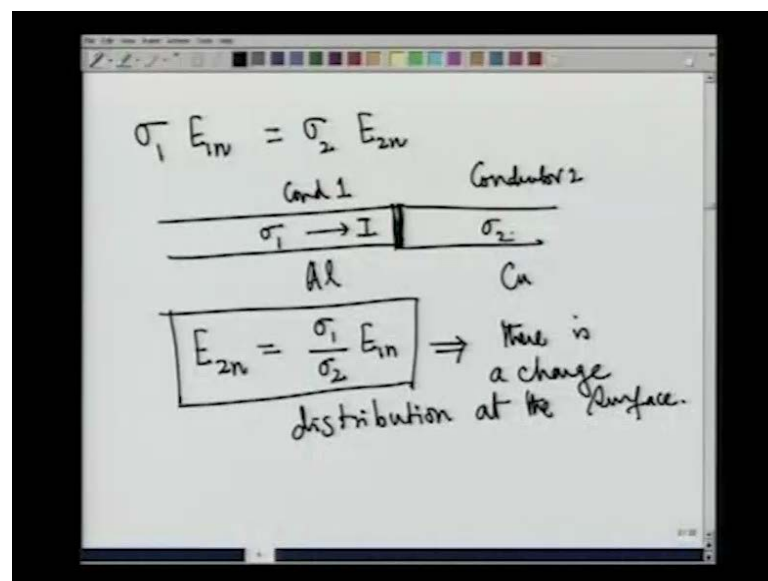 σ₁ E₁ₙ = σ₂ E₂ₙ
Cond 1 Conductor 2
σ₁ → I σ₂
Al Cu
E₂ₙ = σ₁/σ₂ E₁ₙ ⇒ there is
a charge
distribution at the surface.